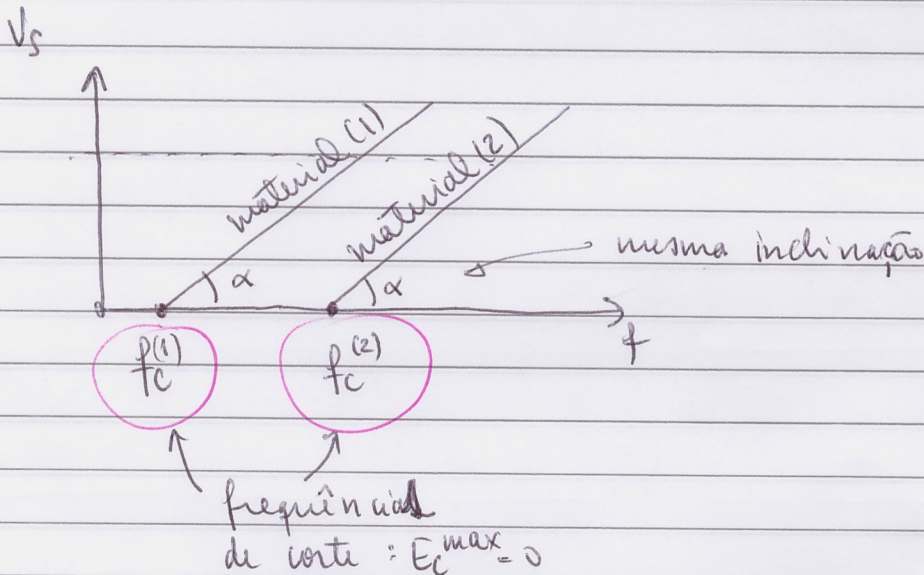 Vs
material (1)
material (2)
α
α
mesma inclinação
f
fc(1)
fc(2)
frequências
de corte : Ec max = 0